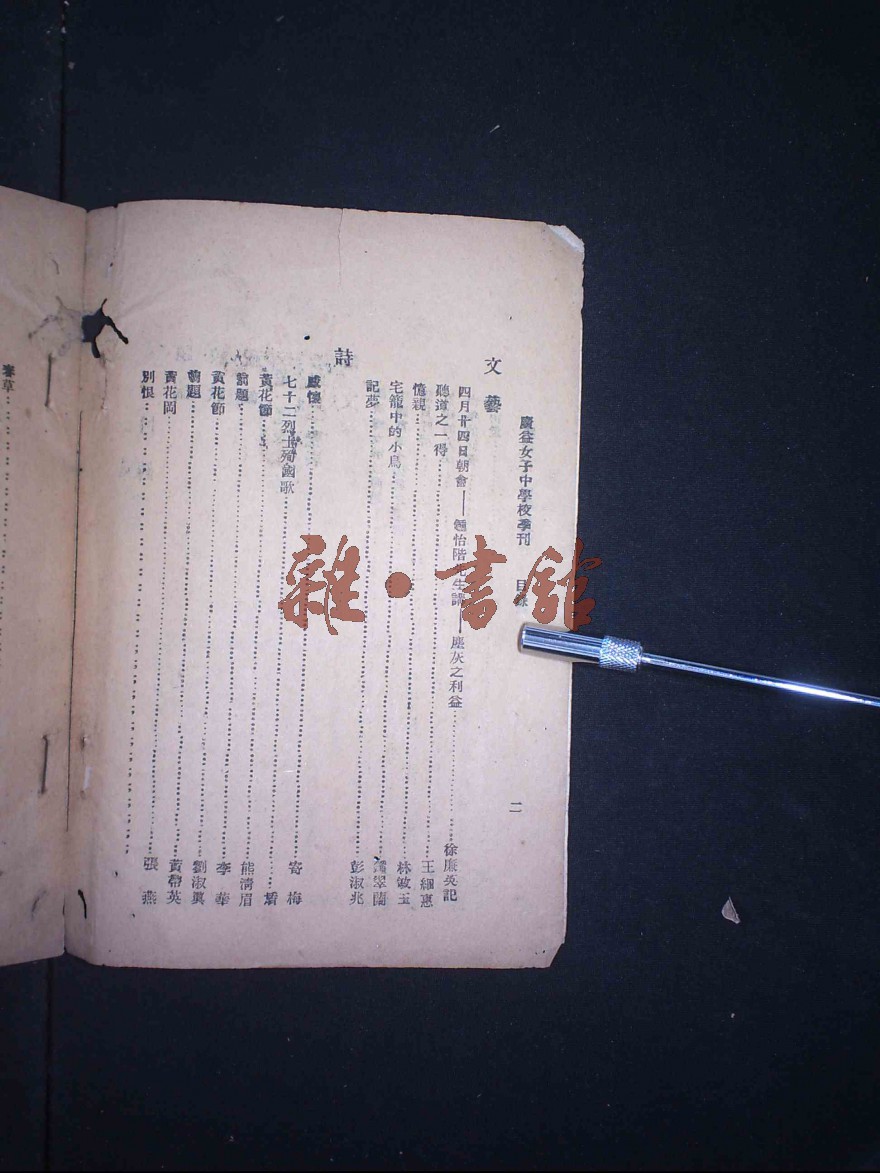 廣益女子中學校季刊 目錄 二
文藝
四月廿四日朝會——鍾怡階先生講——塵灰之利益……徐廉英記
聽道之一得……王細惠
憶親……林敏玉
宅籠中的小鳥……翠蘭
記夢……彭淑兆
詩
感懷……寄梅
七十二烈士殉國歌……
黃花節……熊清眉
前題……李華
黃花節……劉淑眞
前題……黃帶英
黃花岡……張燕
別恨……
春草……
雜·書館